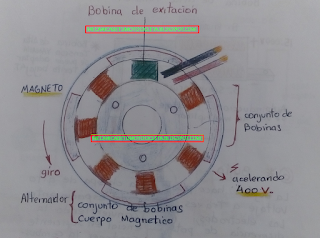 Bobina de exitacion
MAGNETO
conjunto de
Bobinas
giro
acelerando
400 V.
Alternador
conjunto de bobinas
Cuerpo Magnetico